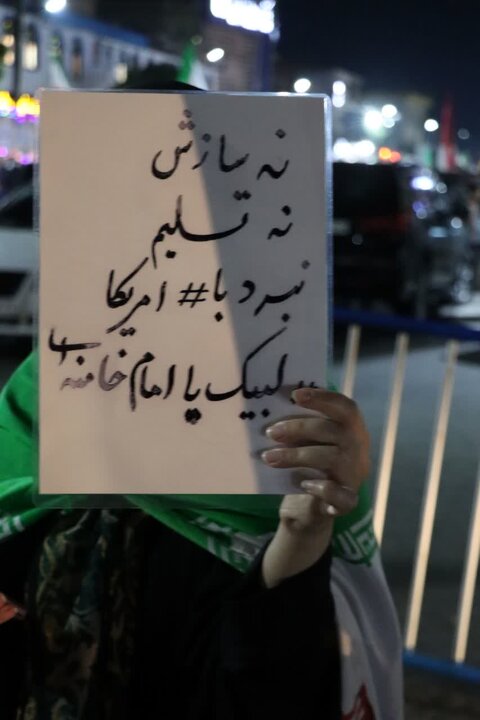 نه سازش
نه تسلیم
نبرد با # امریکا
لبیک یا امام خامنه ای